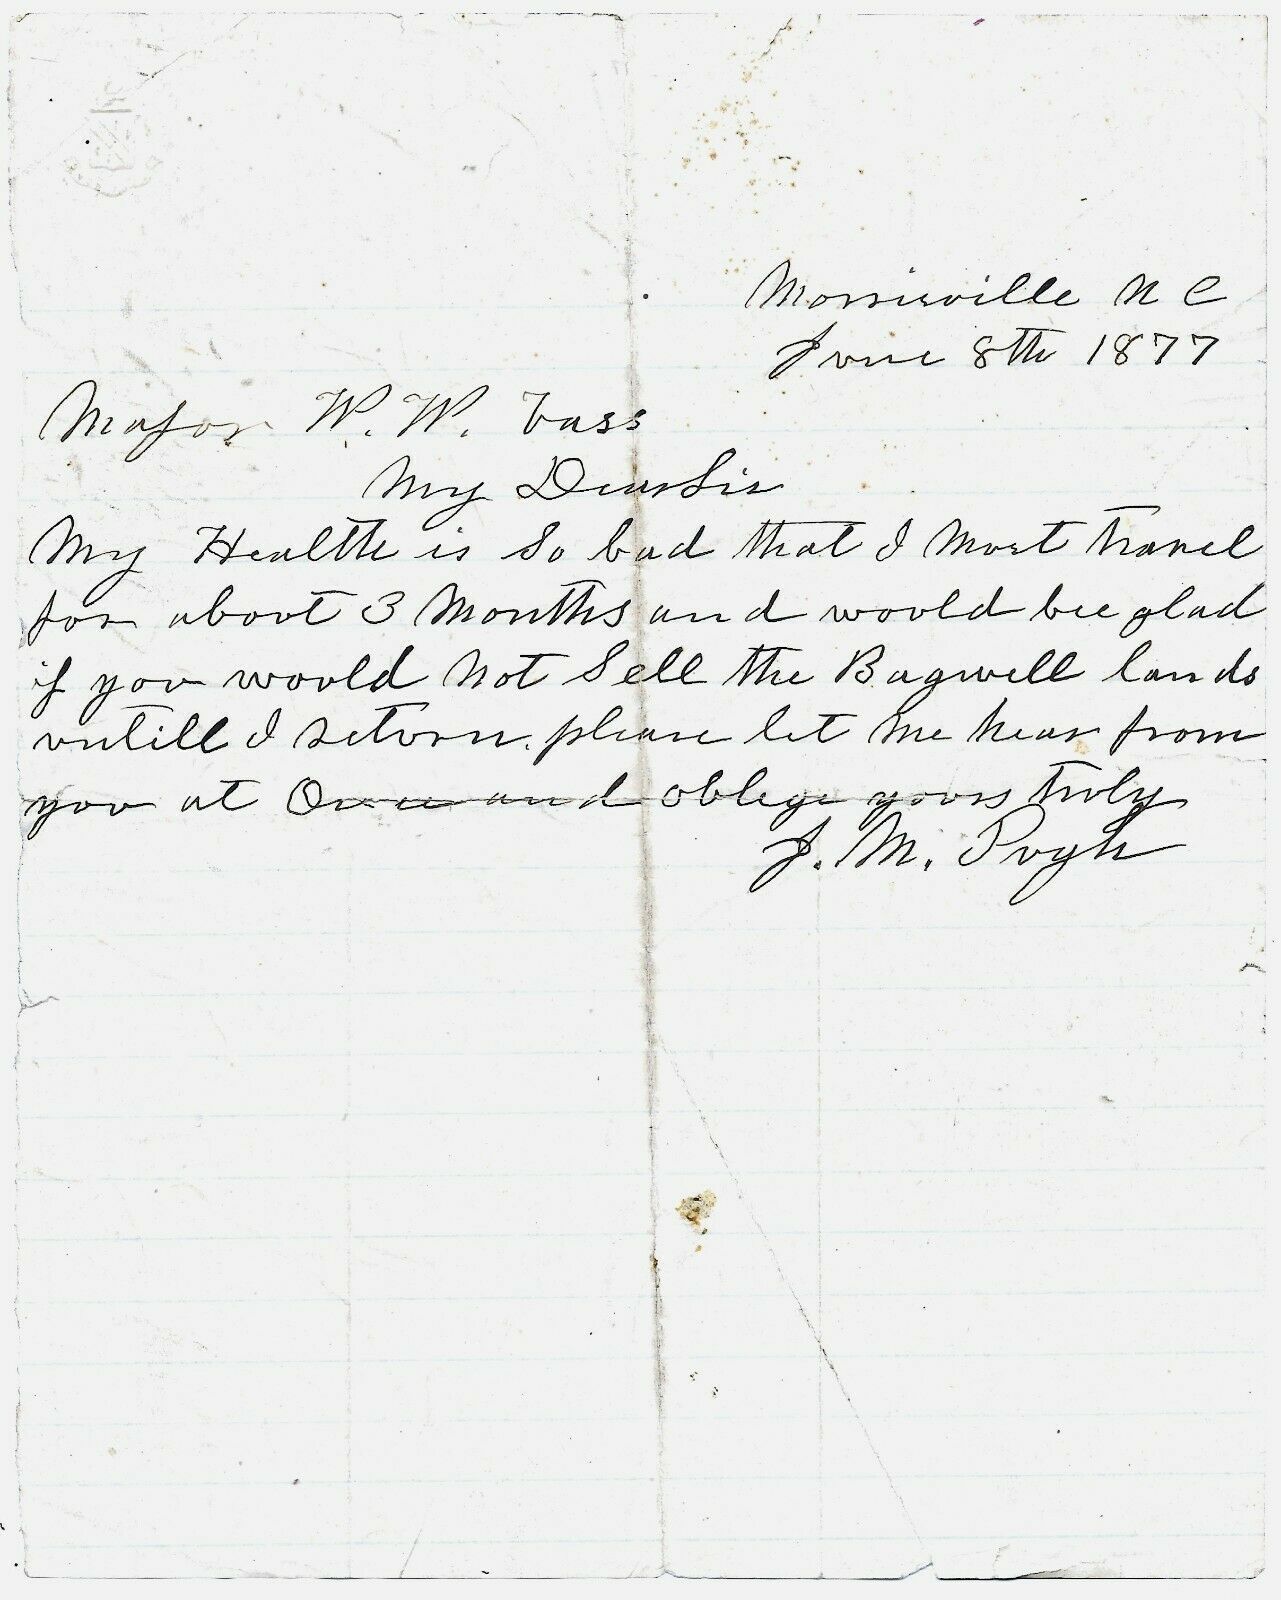 Morrisville N C
June 8th 1877
Major W. W. Vass
My Dear Sir
My Health is So bad that I Must travel
for about 3 Months and would bee glad
if you would Not Sell the Bagwell lands
untill I return. please let me hear from
you at Once and oblege yours truly
J. M. Pugh